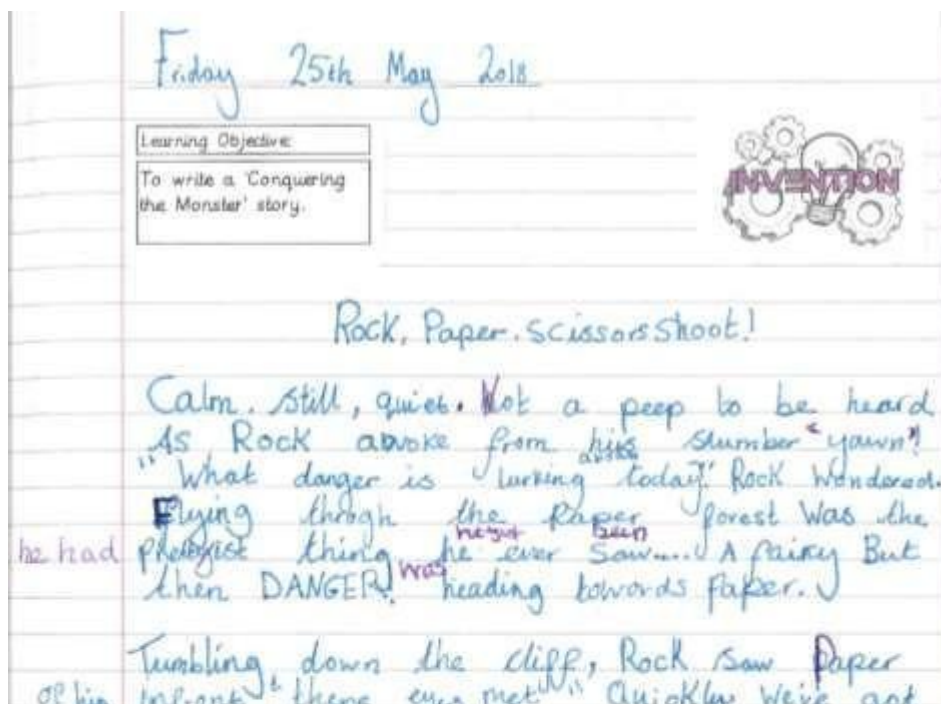 Friday 25th May 2018
Learning Objective:
To write a 'Conquering
the Monster' story.
INVENTION
Rock, Paper. Scissors Shoot!
Calm. Still, quiet. Not a peep to be heard
As Rock awoke from his slumber "yawn"!
"What danger is lurking today." Rock Wondered.
Flying throgh the Paper forest was the
he had thing he ever saw.... A fairy But
then DANGER! was heading towords paper.
Tumbling down the cliff, Rock saw Paper
infront there eyes met " Quickly We've got